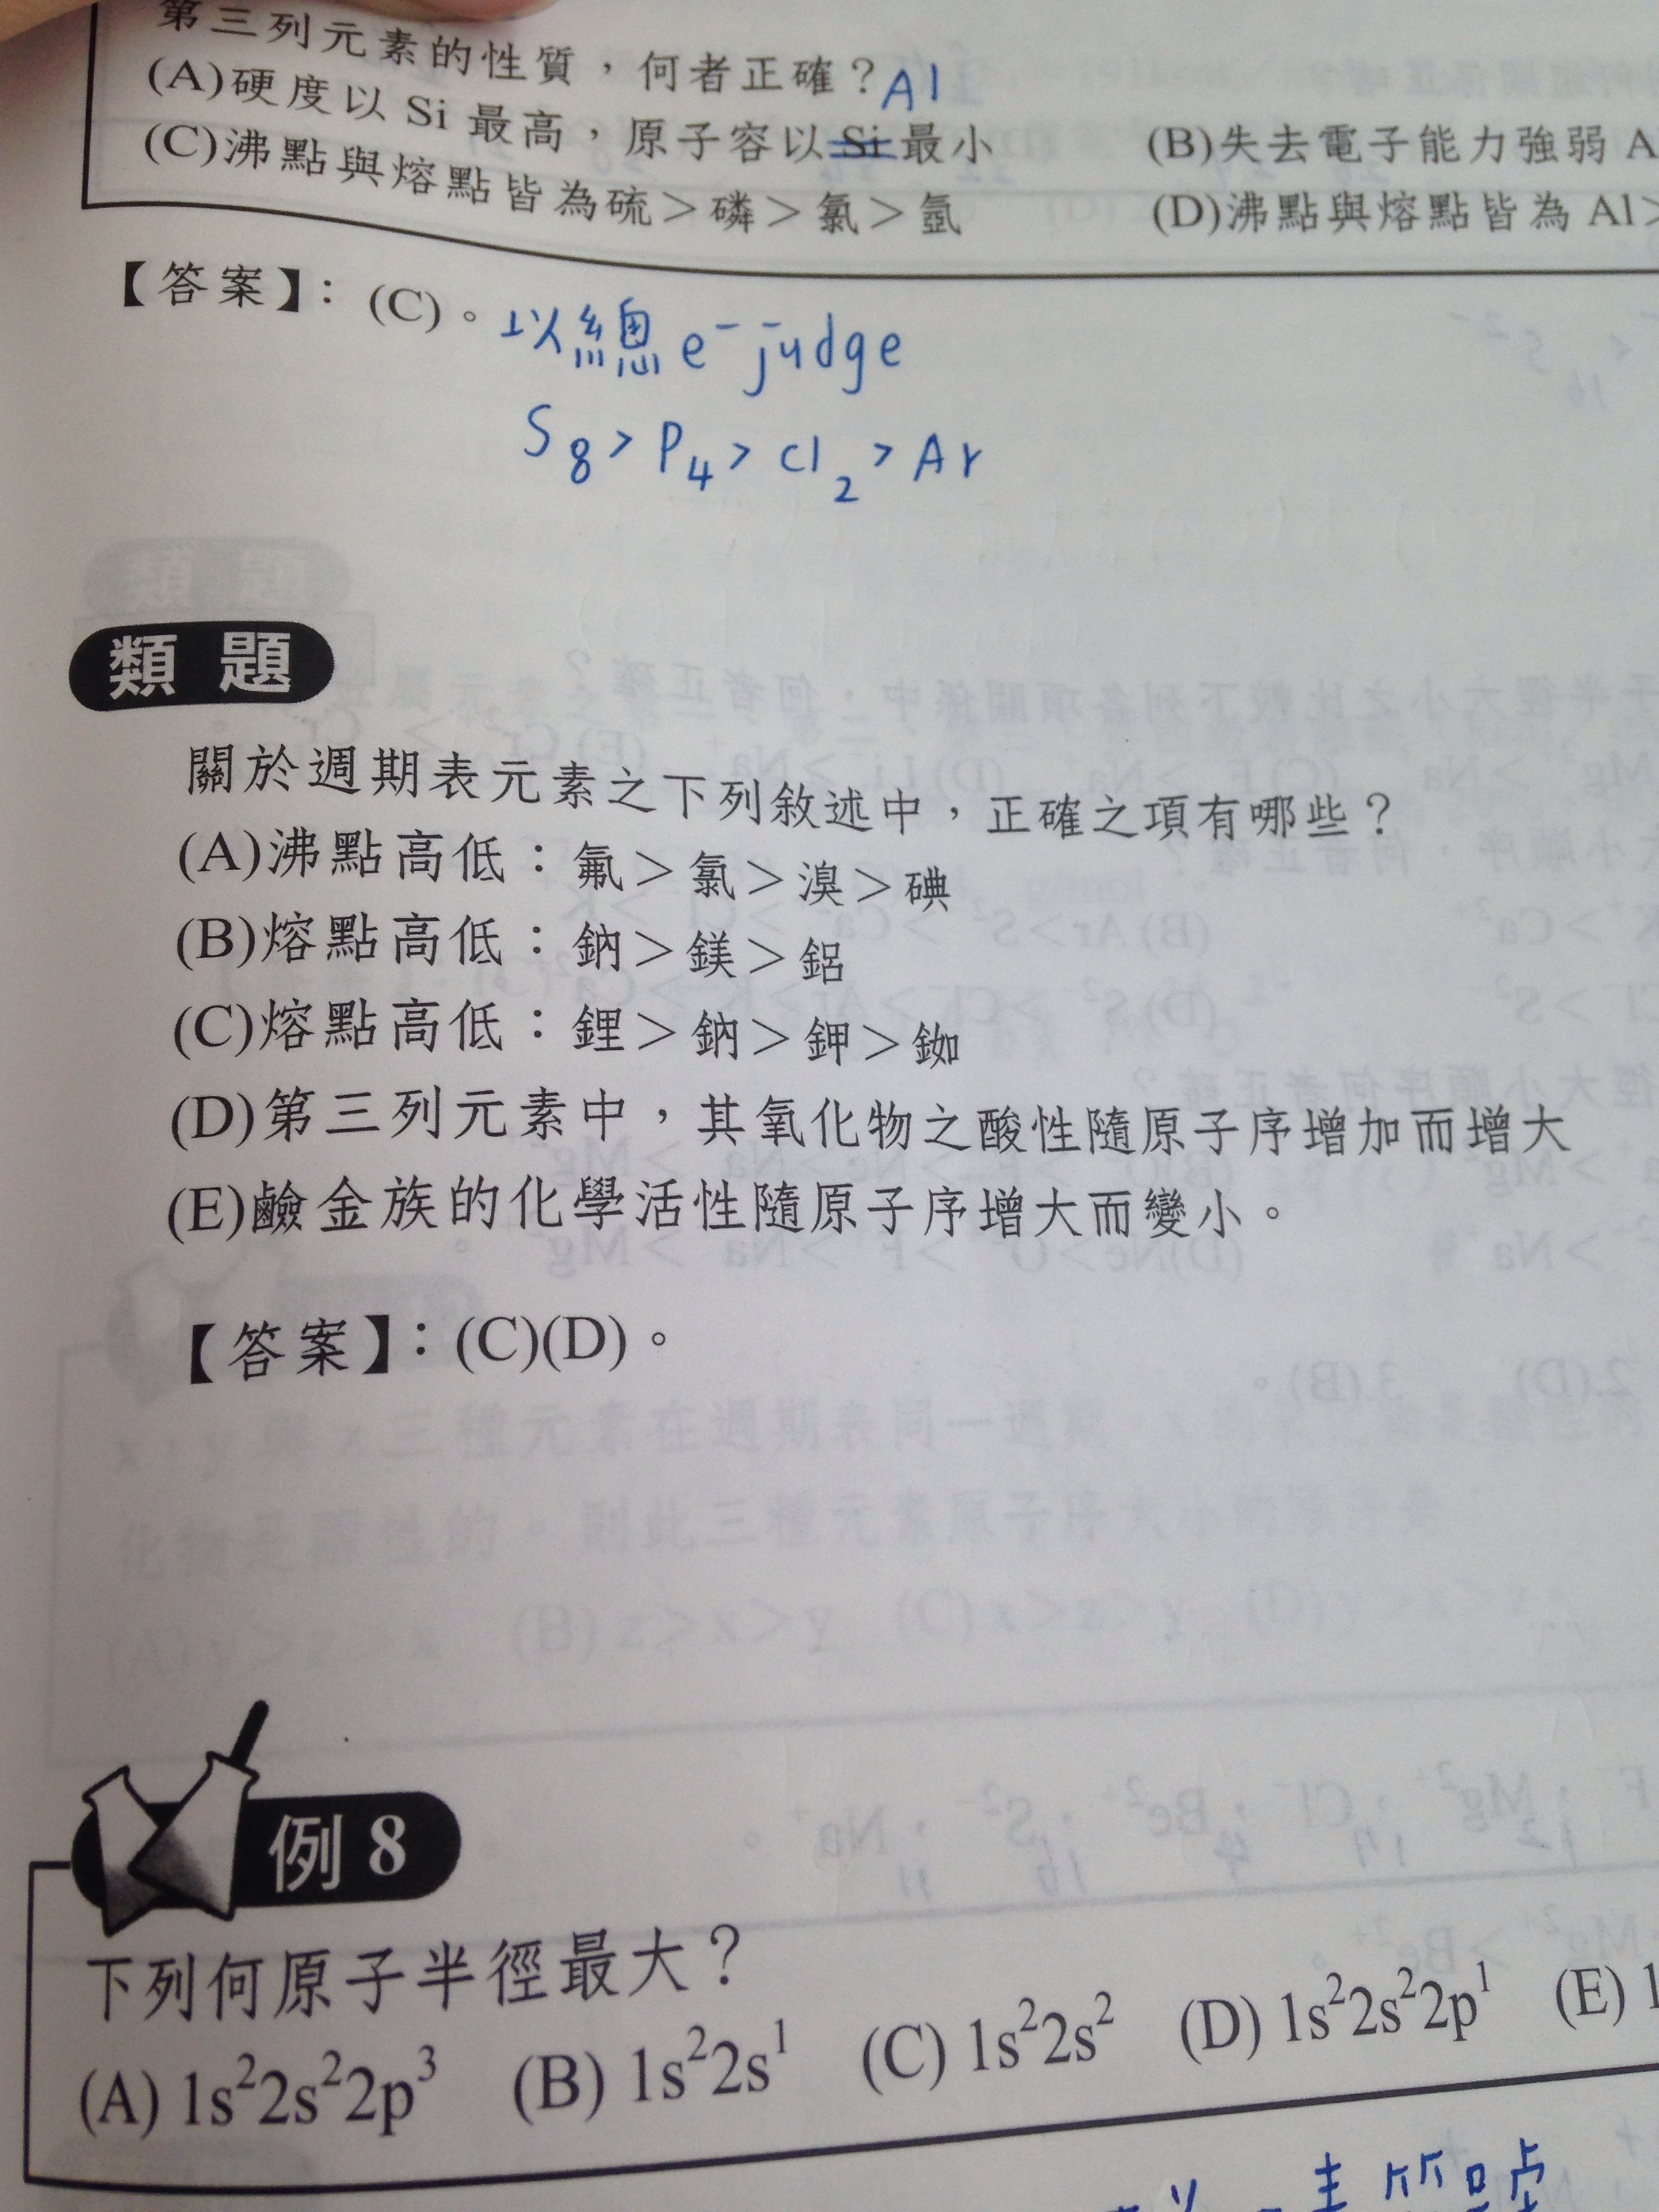 第三列元素的性質，何者正確？
Al
(A)硬度以 Si 最高，原子容以Si最小 (B)失去電子能力強弱 A
(C)沸點與熔點皆為硫＞磷＞氯＞氬 (D)沸點與熔點皆為 Al＞
【答案】：(C)。
以總 e⁻ judge
S₈ > P₄ > Cl₂ > Ar
類題
關於週期表元素之下列敘述中，正確之項有哪些？
(A)沸點高低：氟＞氯＞溴＞碘
(B)熔點高低：鈉＞鎂＞鋁
(C)熔點高低：鋰＞鈉＞鉀＞銣
(D)第三列元素中，其氧化物之酸性隨原子序增加而增大
(E)鹼金族的化學活性隨原子序增大而變小。
【答案】：(C)(D)。
例 8
下列何原子半徑最大？
(A) 1s²2s²2p³ (B) 1s²2s¹ (C) 1s²2s² (D) 1s²2s²2p¹ (E) 1